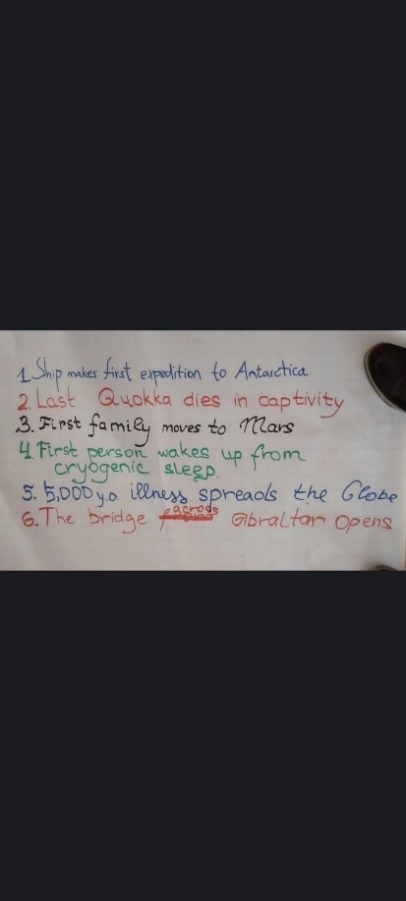 1. Ship makes first expedition to Antarctica
2. Last Quokka dies in captivity
3. First family moves to Mars
4. First person wakes up from
cryogenic sleep.
5. 5,000 y.o. illness spreads the Globe
6. The bridge across Gibraltar opens